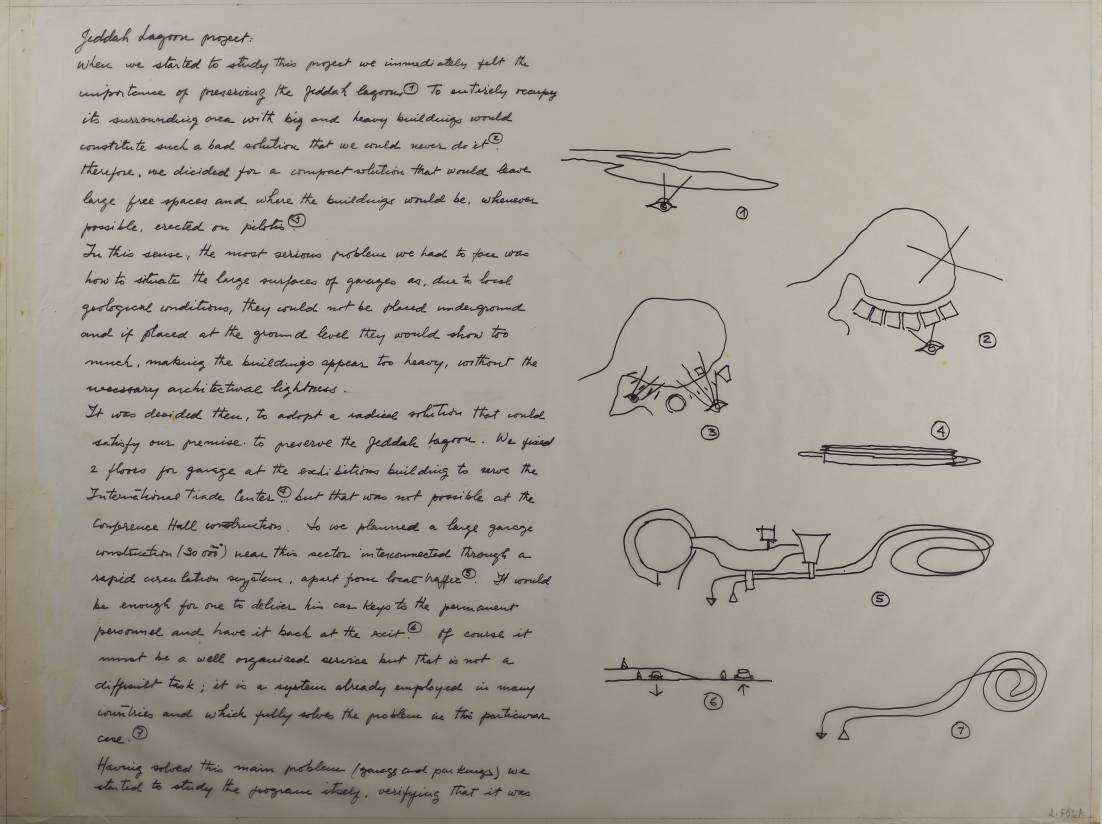 Jeddah Lagoon project:
When we started to study this project we immediately felt the
importance of preserving the Jeddah lagoon ① To entirely occupy
its surrounding area with big and heavy buildings would
constitute such a bad solution that we could never do it ②.
therefore, we dicided for a compact solution that would leave
large free spaces and where the buildings would be, whenever
possible, erected on pilotis ③
In this sense, the most serious problem we had to face was
how to situate the large surfaces of garages as, due to local
geological conditions, they could not be placed underground
and if placed at the ground level they would show too
much, making the buildings appear too heavy, without the
necessary architectural lightness.
It was decided then, to adopt a radical solution that could
satisfy our premise. to preserve the Jeddah Lagoon. We fixed
2 floors for garage at the exhibitions building to serve the
International Trade Center ④ but that was not possible at the
Conference Hall construction. So we planned a large garage
construction near this sector interconnected through a
rapid circulation system, apart from local traffic ⑤. It would
be enough for one to deliver his car keys to the permanent
personnel and have it back at the exit ⑥. Of course it
must be a well organised service but that is not a
difficult task; it is a system already employed in many
countries and which fully solves the problem in this particular
case. ⑦
Having solved this main problem (garage and parkings) we
started to study the programe itself, verifying that it was
①
②
③
④
⑤
⑥
⑦